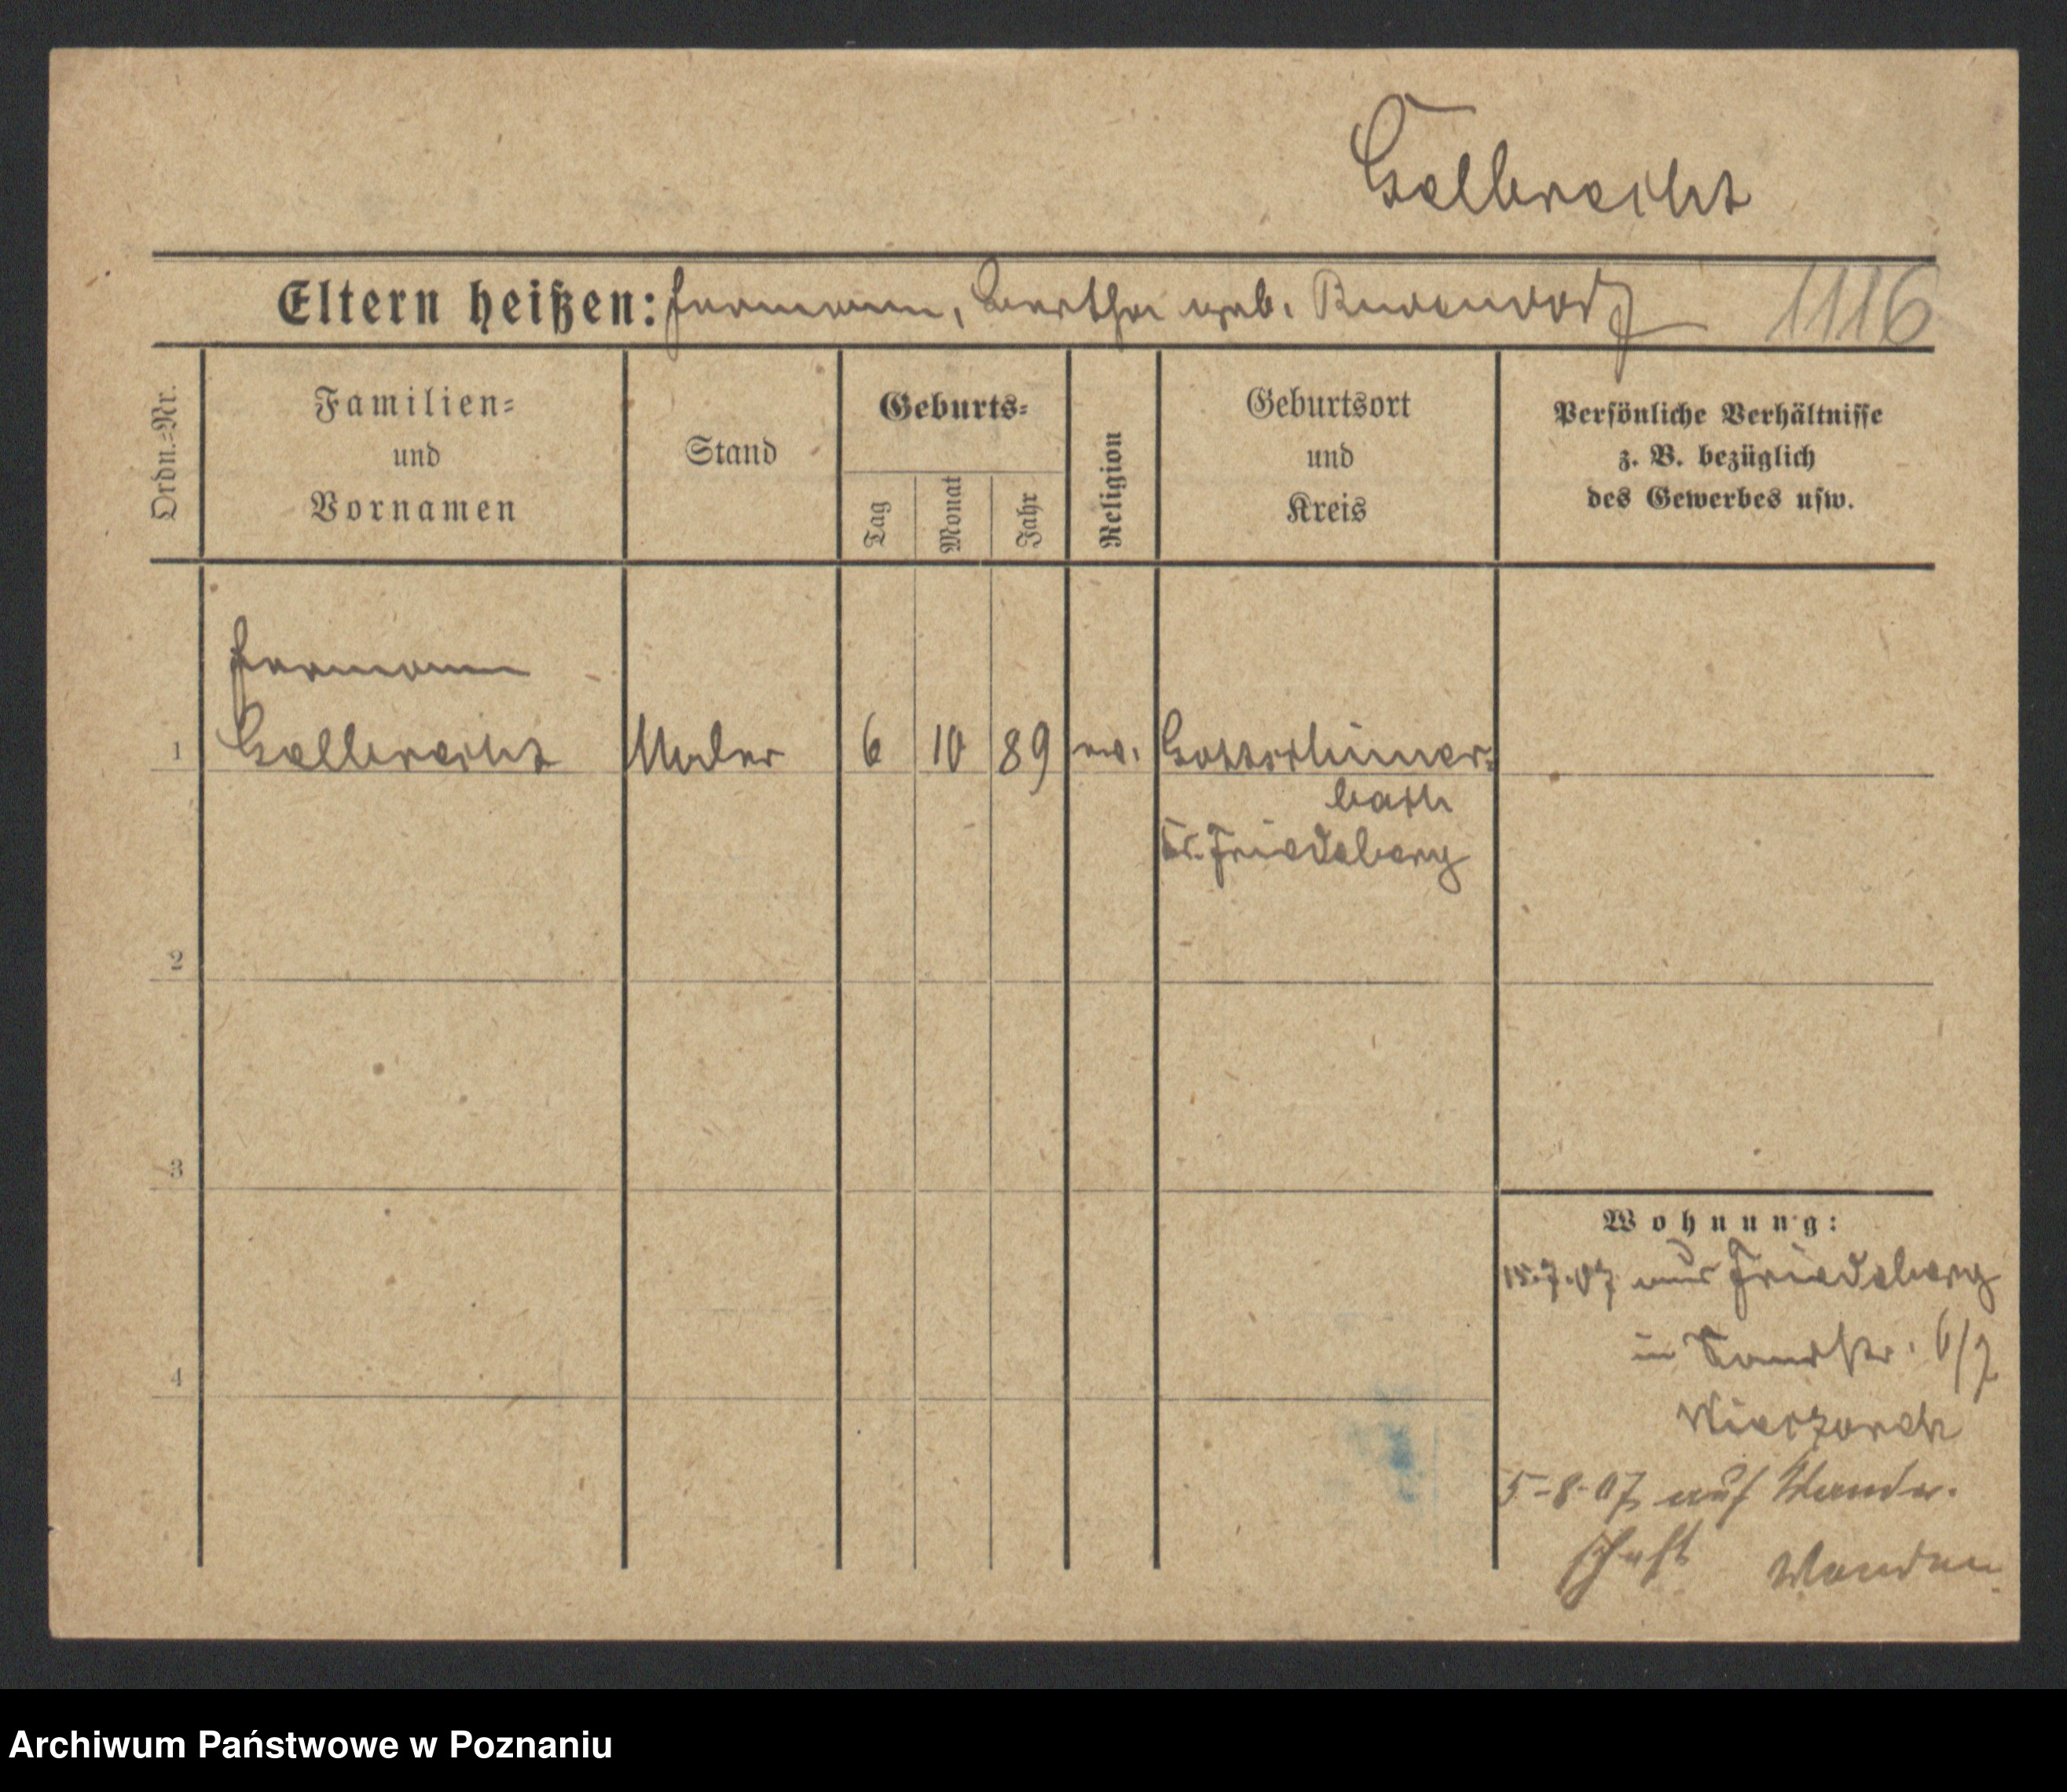 Gelbrecht
Eltern heißen: Hermann, Bertha geb. 1116
Ordn.=Nr.
Familien=
und
Vornamen
Stand
Geburts=
Tag
Monat
Jahr
Religion
Geburtsort
und
Kreis
Persönliche Verhältnisse
z. B. bezüglich
des Gewerbes usw.
Hermann
1 Gelbrecht Maler 6 10 89 ev.
Kr. Friedeberg
2
3
4
Wohnung:
15.7.07 aus Friedeberg
in 6/7
5-8-07 auf Wander-
schaft
Archiwum Państwowe w Poznaniu